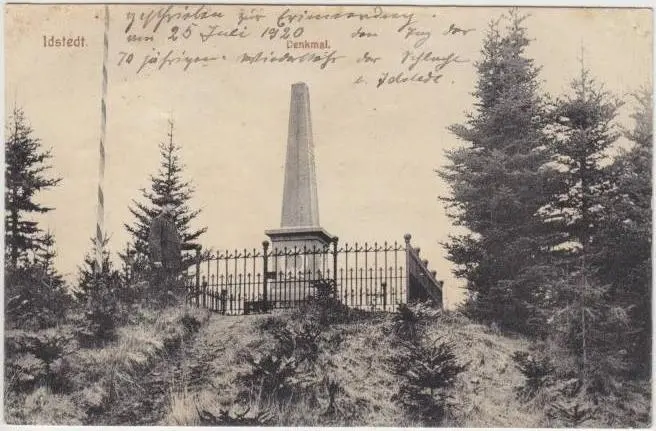 geschrieben zur Erinnerung.
Idstedt. am 25 Juli 1920 den Tag der
Denkmal.
70 jährigen Wiederkehr der Schlacht
v. Idstedt.